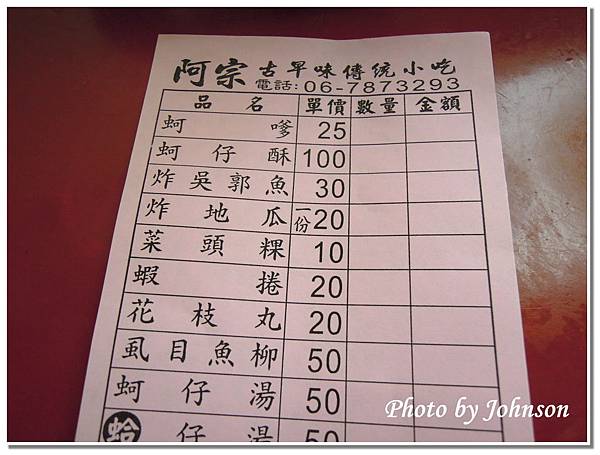 阿宗古早味傳統小吃
電話:06-7873293
品名 單價 數量 金額
蚵嗲 25
蚵仔酥 100
炸吳郭魚 30
炸地瓜 一份20
菜頭粿 10
蝦捲 20
花枝丸 20
虱目魚柳 50
蚵仔湯 50
蛤仔湯 50
Photo by Johnson